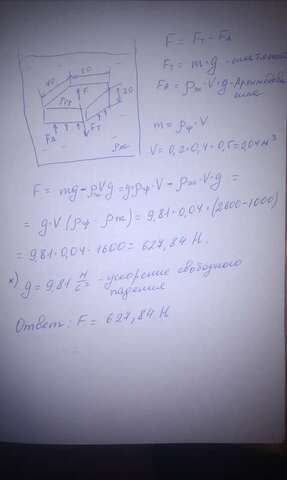 F = Fт - FA
Fт = m·g -
FA = ρж·V·g - Архимедова сила
40
50
20
F
ρф
FA
Fт
ρж
m = ρф·V
V = 0,2·0,4·0,5=0,04 м³
F = mg - ρжVg = g·ρф·V - ρж·V·g =
= g·V (ρф - ρж) = 9,81·0,04·(2600-1000)
= 9,81·0,04·1600 = 627,84 Н.
*) g = 9,81 Н/с² - ускорение свободного
падения
Ответ: F = 627,84 Н